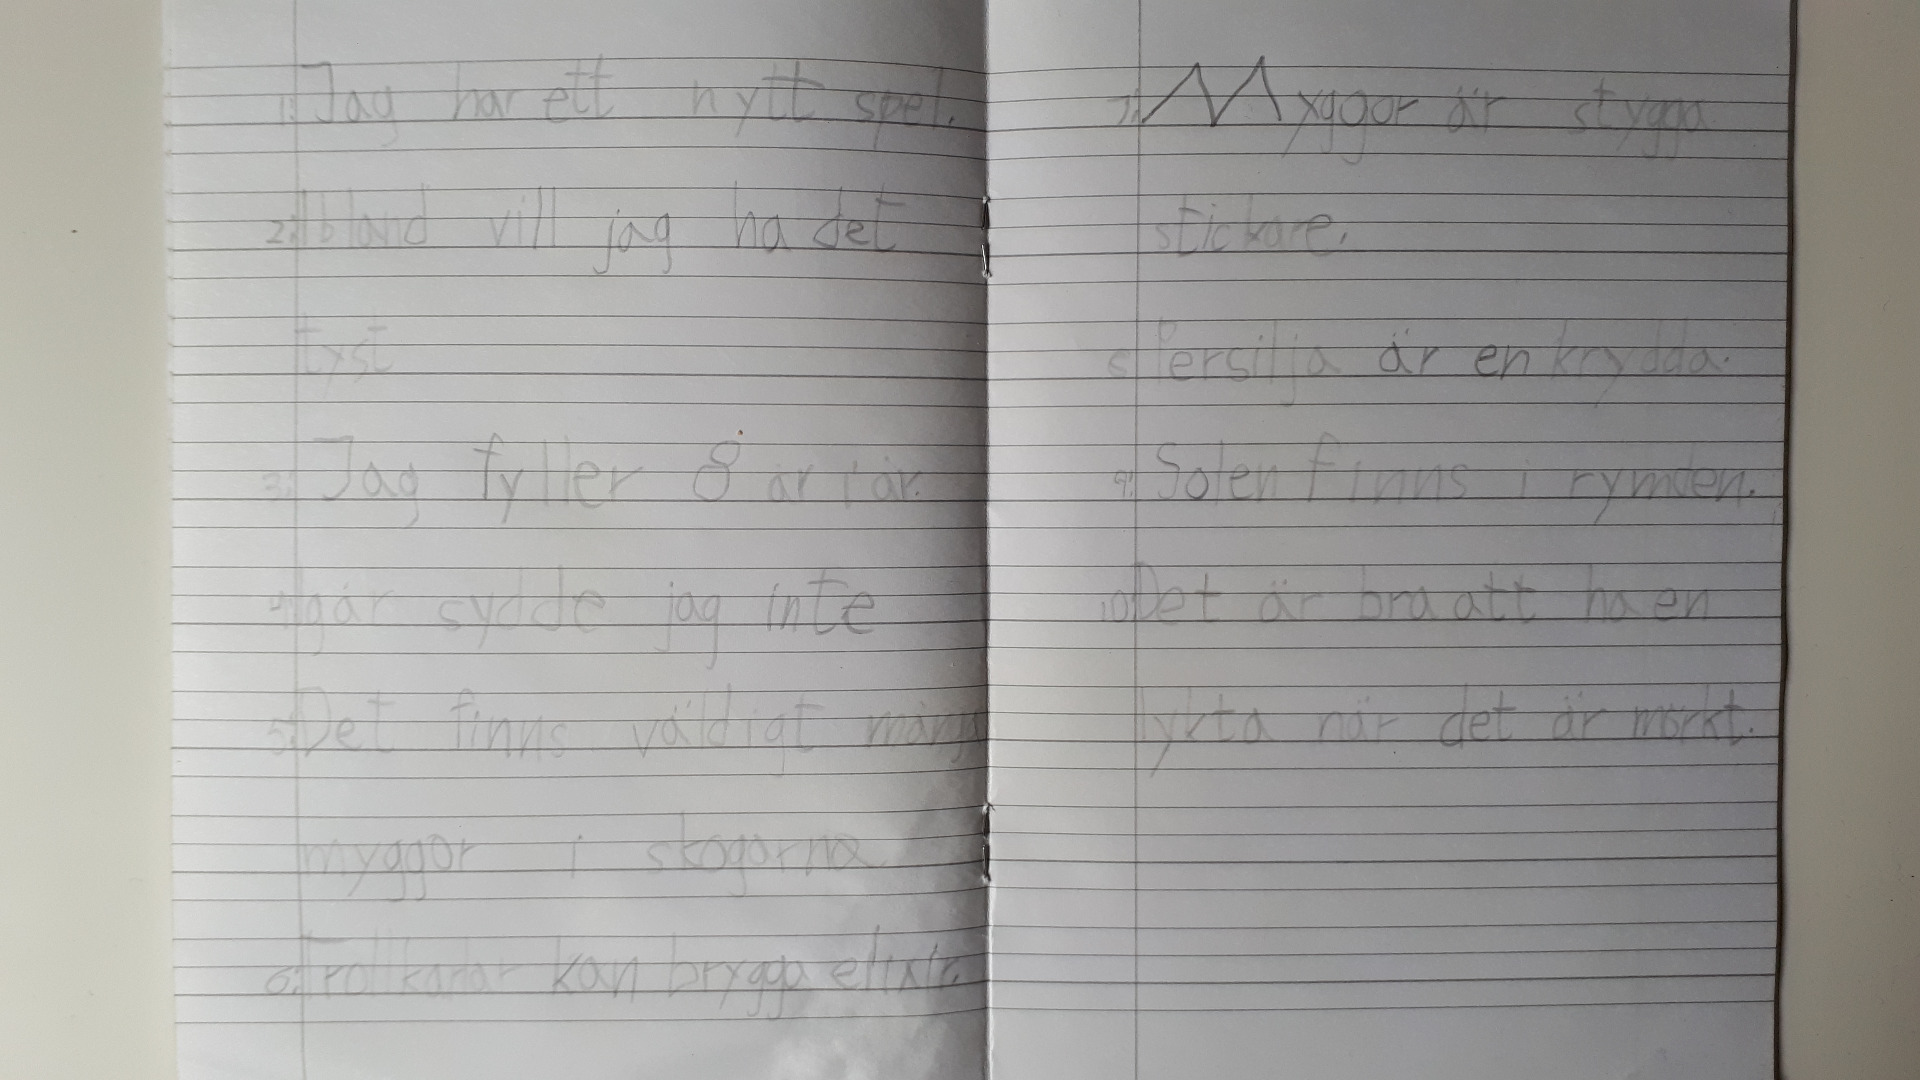 1. Jag har ett nytt spel.
2. Ibland vill jag ha det
tyst
3. Jag fyller 8 år i år.
4. Igår sydde jag inte
5. Det finns väldigt många
myggor i skogarna
6. Trollkarlar kan brygga elixir.
7. Myggor är stygga
stickare.
8 Persilja är en krydda.
9. Solen finns i rymden.
10. Det är bra att ha en
lykta när det är mörkt.